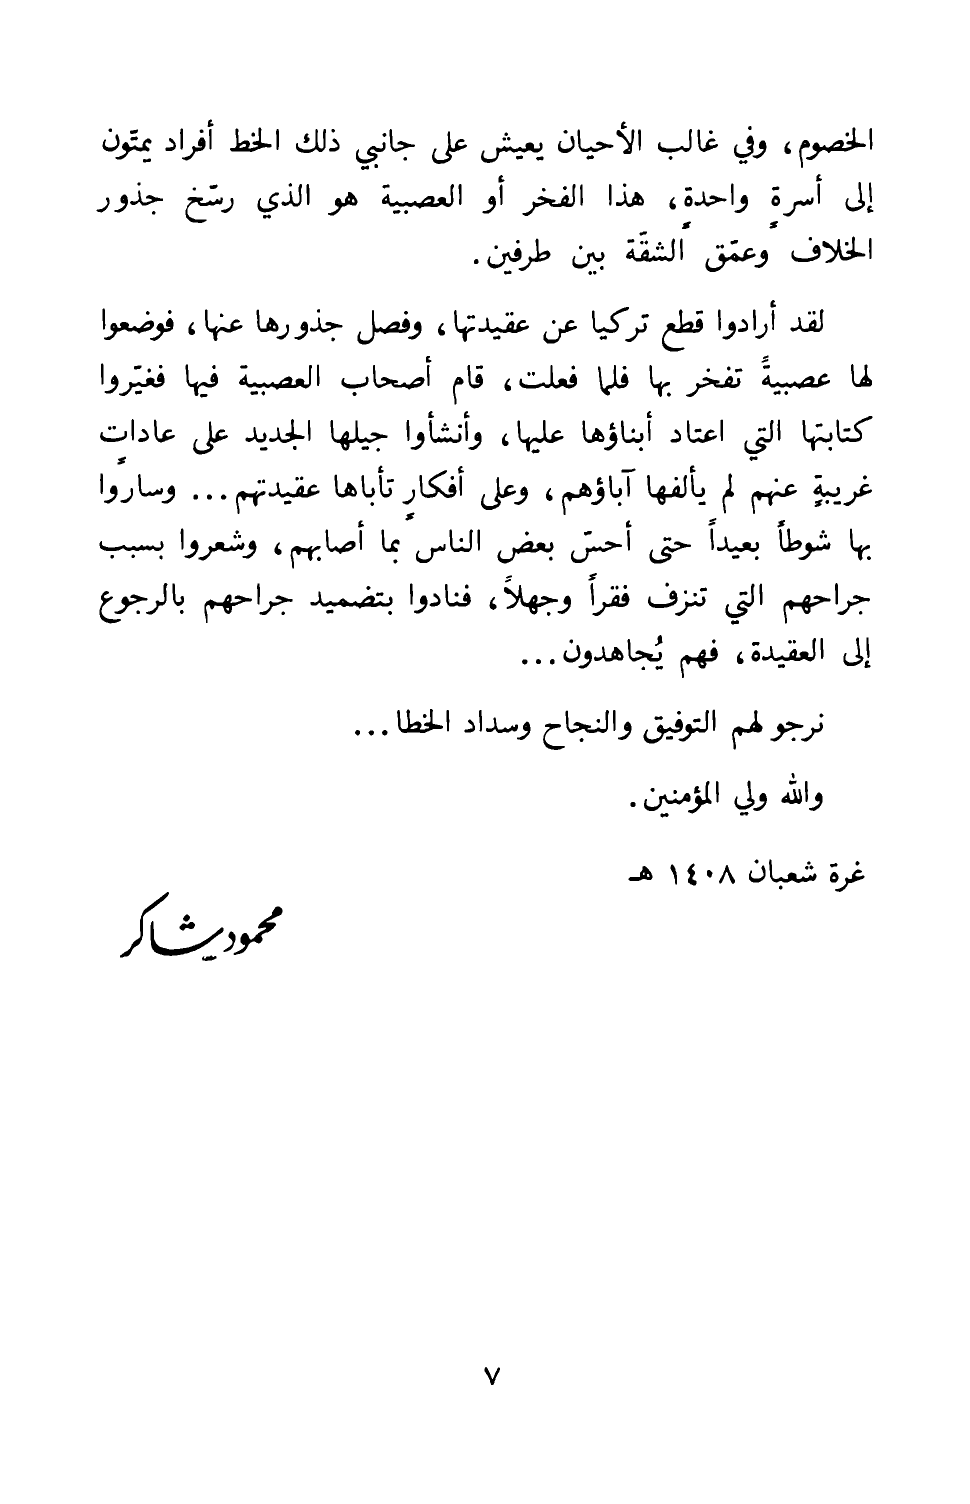 الخصوم، وفي غالب الأحيان يعيش على جانبي ذلك الخط أفراد يمتّون
إلى أسرةٍ واحدةٍ، هذا الفخر أو العصبية هو الذي رسّخ جذور
الخلاف وعمّق الشقّة بين طرفين.
لقد أرادوا قطع تركيا عن عقيدتها، وفصل جذورها عنها، فوضعوا
لها عصبيةً تفخر بها فلما فعلت، قام أصحاب العصبية فيها فغيّروا
كتابتها التي اعتاد أبناؤها عليها، وأنشأوا جيلها الجديد على عاداتٍ
غريبةٍ عنهم لم يألفها آباؤهم، وعلى أفكارٍ تأباها عقيدتهم... وساروا
بها شوطاً بعيداً حتى أحسّ بعض الناس بما أصابهم، وشعروا بسبب
جراحهم التي تنزف فقراً وجهلاً، فنادوا بتضميد جراحهم بالرجوع
إلى العقيدة، فهم يُجاهدون...
نرجو لهم التوفيق والنجاح وسداد الخطا...
والله ولي المؤمنين.
غرة شعبان ١٤٠٨ هـ
محمود شاكر
٧